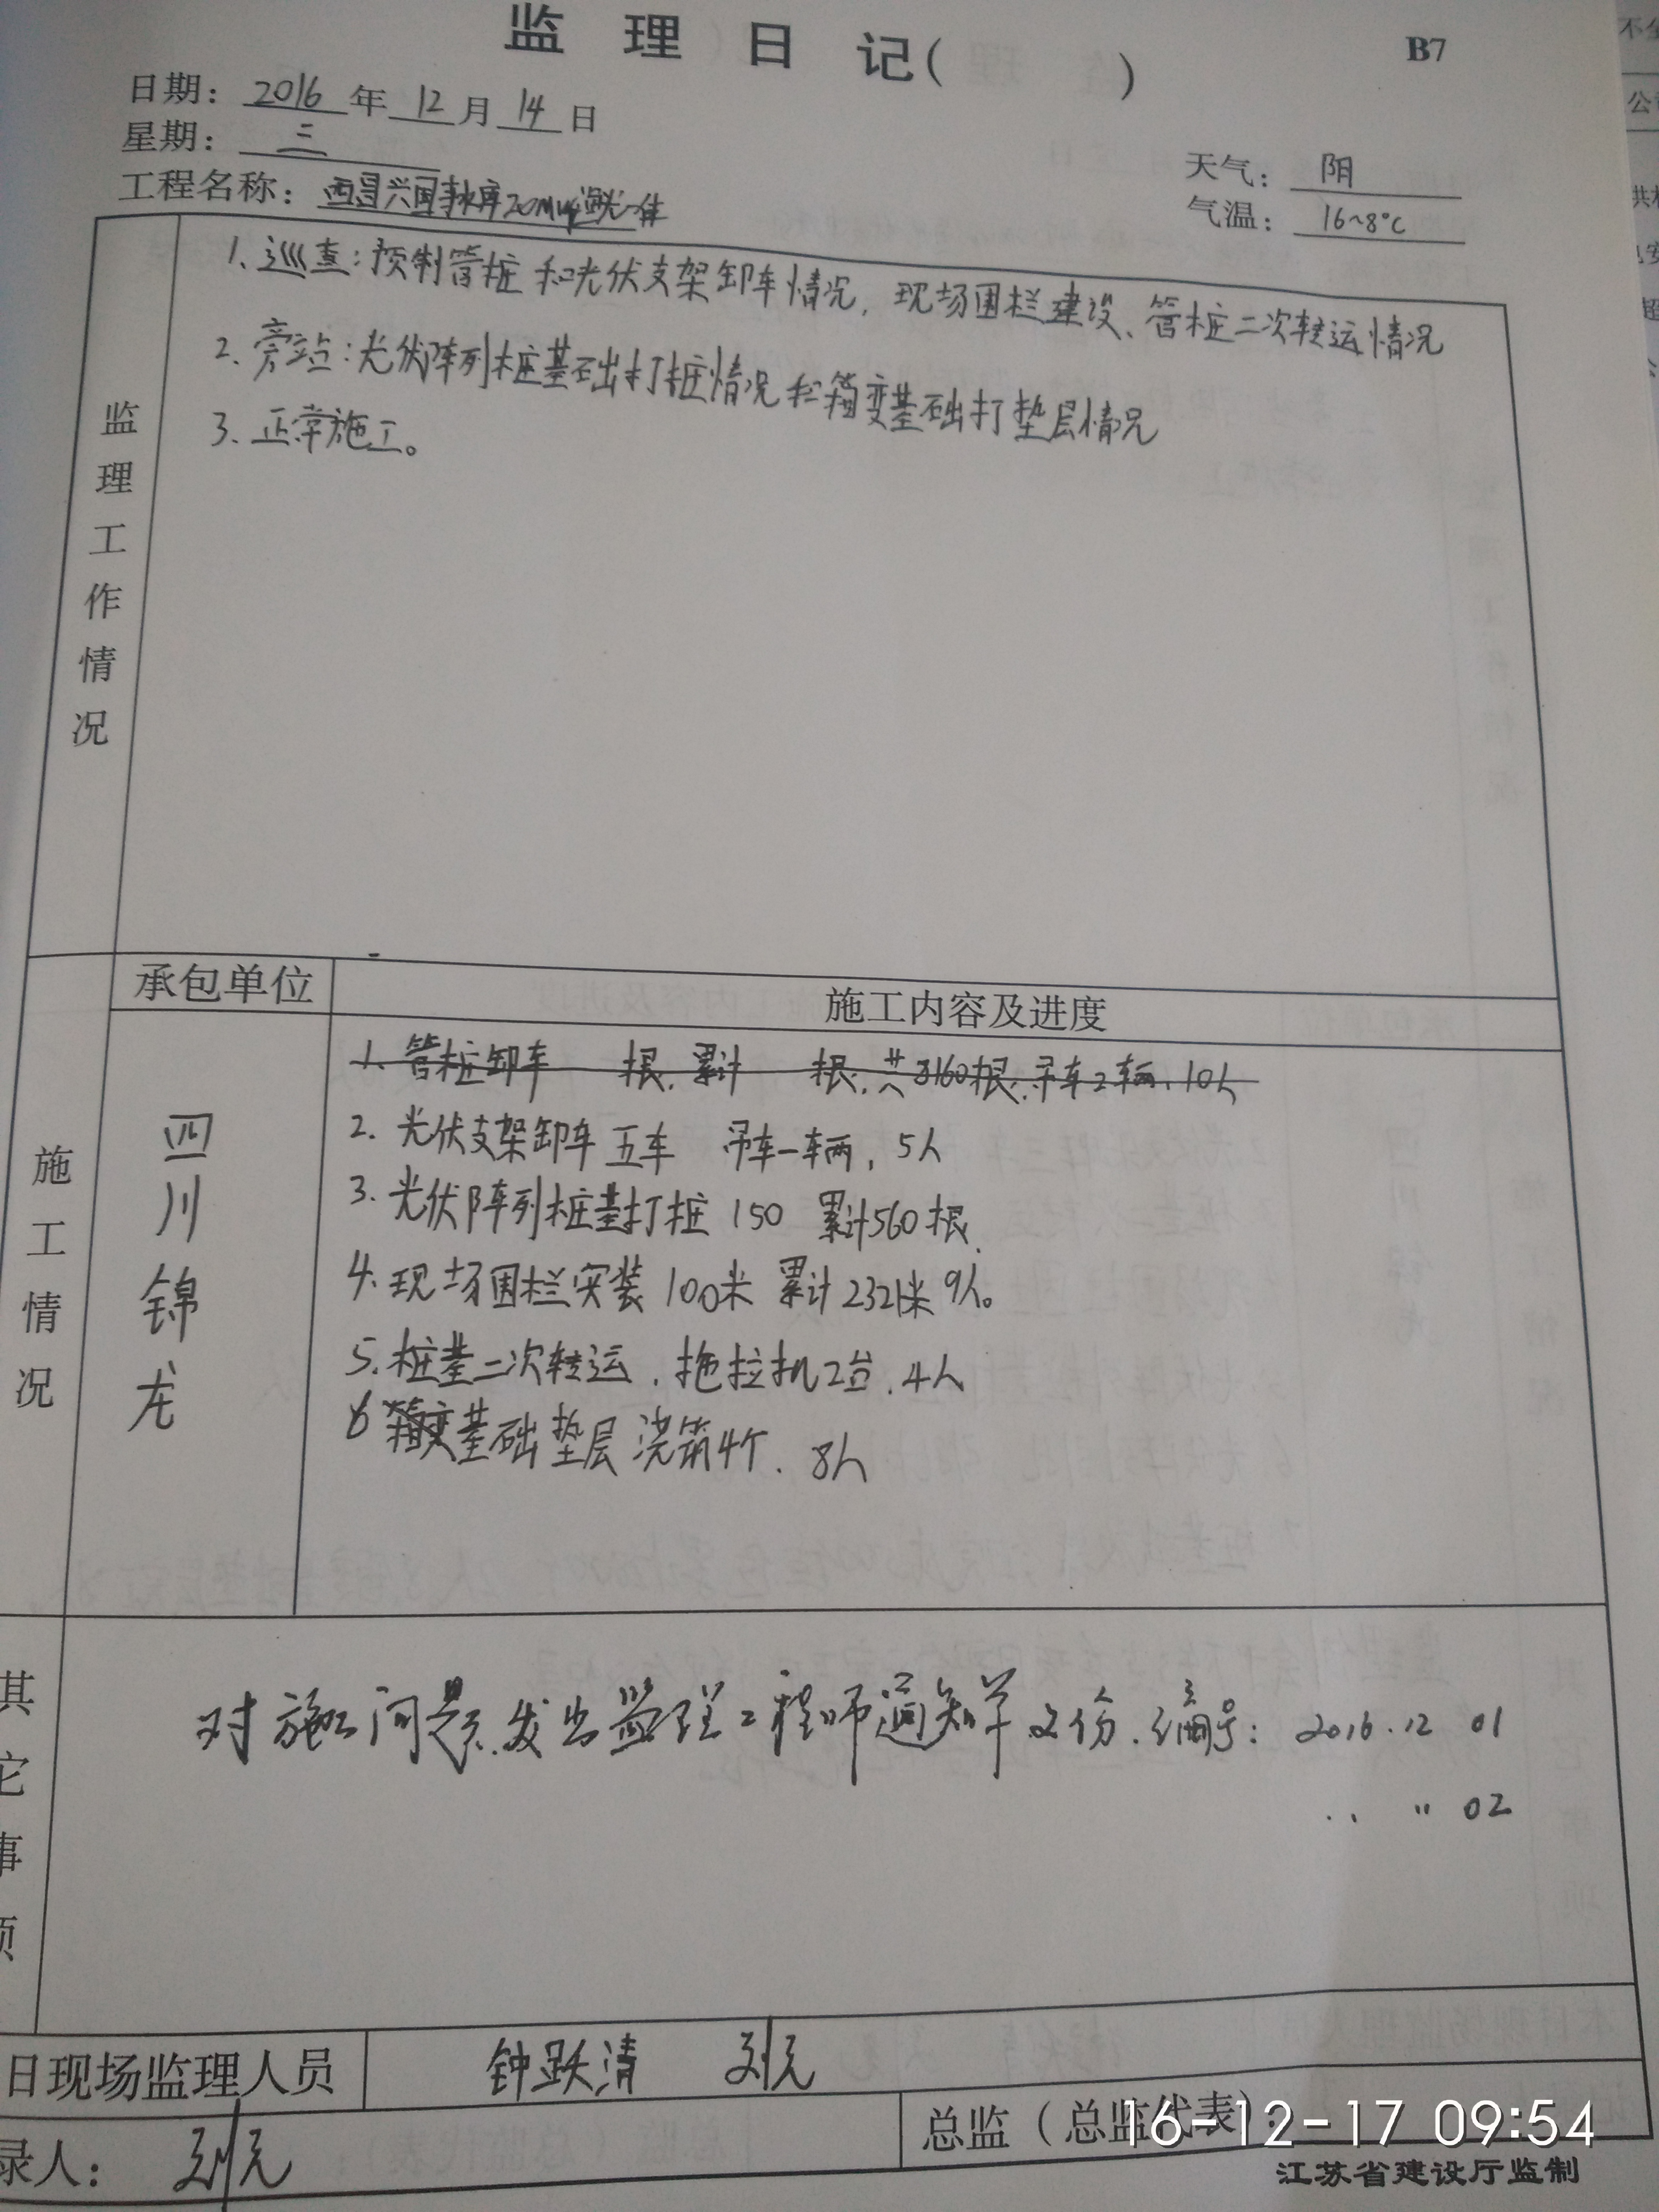 监 理 日 记( )
B7
日期: 2016 年 12 月 14 日
星期: 三
天气: 阴
工程名称: 西昌兴国水库20MW渔光一体
气温: 16~8℃
监理工作情况
1、巡查:预制管桩和光伏支架卸车情况,现场围栏建设、管桩二次转运情况
2、旁站:光伏阵列桩基础打桩情况和箱变基础打垫层情况
3、正常施工。
承包单位
施工内容及进度
施工情况
四川锦龙
1、管桩卸车 根,累计 根,共3160根,吊车2辆,10人
2. 光伏支架卸车 五车 吊车一辆, 5人
3. 光伏阵列桩基打桩 150 累计560根
4. 现场围栏安装 100米 累计2321米 9人。
5. 桩基二次转运,拖拉机2台,4人
6 箱变基础垫层浇筑4个. 8人
其它事项
对施工问题发出监理工程师通知单 2份.编号: 2016.12 01
〃 〃 02
日现场监理人员
钟跃清 刘元
录人: 刘元
总监(总监代表):
16-12-17 09:54
江苏省建设厅监制